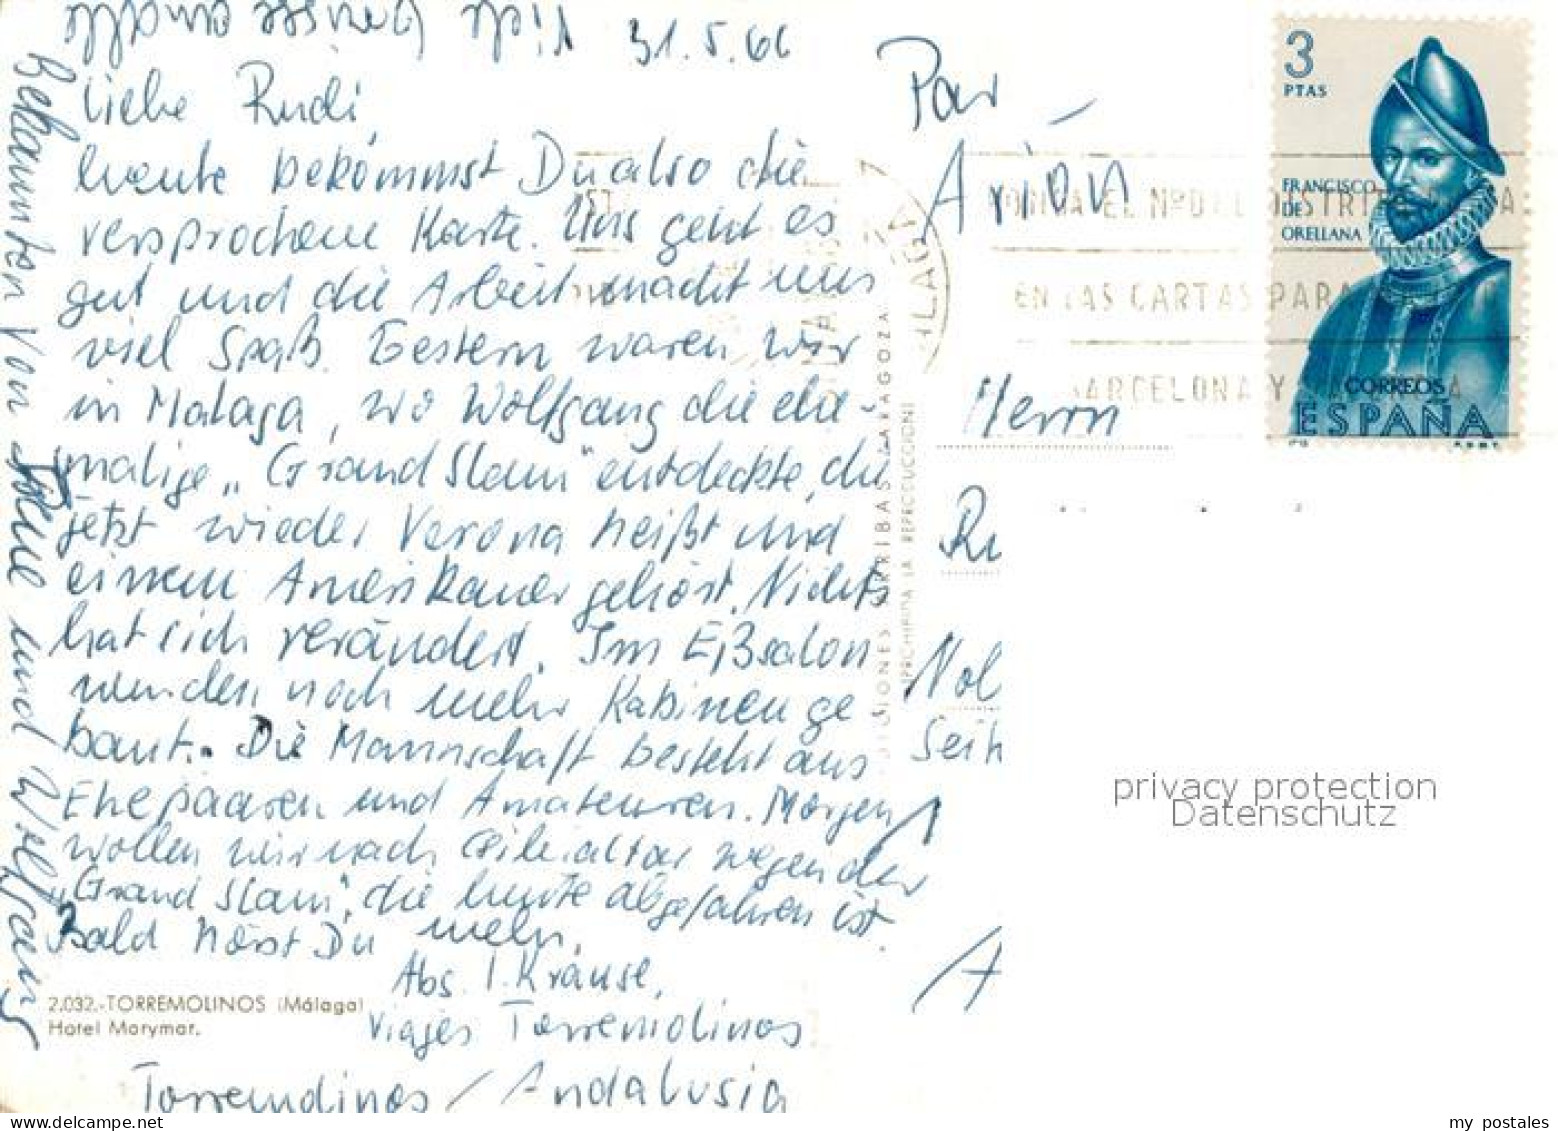 31.5.66
Liebe Rudi,
heute bekommst Du also die
versprochene Karte. Uns geht es
gut und die Arbeit macht uns
viel Spaß. Gestern waren wir
in Malaga, wo Wolfgang die ehe-
malige „Grand Slam" entdeckte, die
jetzt wieder Verona heißt und
einem Amerikaner gehört. Nichts
hat sich verändert. Im Eßsalon
wurden noch mehr Kabinen ge
baut. Die Mannschaft besteht aus
Ehepaaren und Amateuren. Morgen
wollen wir nach Gibraltar wegen der
„Grand Slam", die heute abgefahren ist.
Bald hörst Du mehr.
Abs. I. Krause,
Viajes Torremolinos
Torremolinos / Andalusia
Viele Grüsse
Bekannten von und Wolfgang
2.032.-TORREMOLINOS (Málaga)
Hotel Marymar.
ARRIBAS ZARAGOZA
(PROHIBIDA LA REPRODUCCION)
Par
Avión
Herrn
Nol
A
3
PTAS
FRANCISCO
DE
ORELLANA
CORREOS
ESPAÑA
PONGA EL Nº DEL DISTRITO
EN LAS CARTAS PARA
BARCELONA Y
privacy protection
Datenschutz
my postales